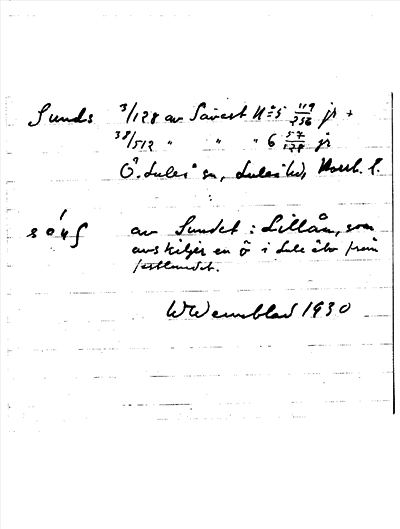 Sunds 3/128 av Sävast No 5 119/256 jr +
38/512 " " " 6 57/128 jr
Ö. Luleå sn, Luleå hd, Norrb. l.
av Sundet i Lillån, som
avskiljer en ö i Lule älv från
fastlandet.
W Wennblad 1930